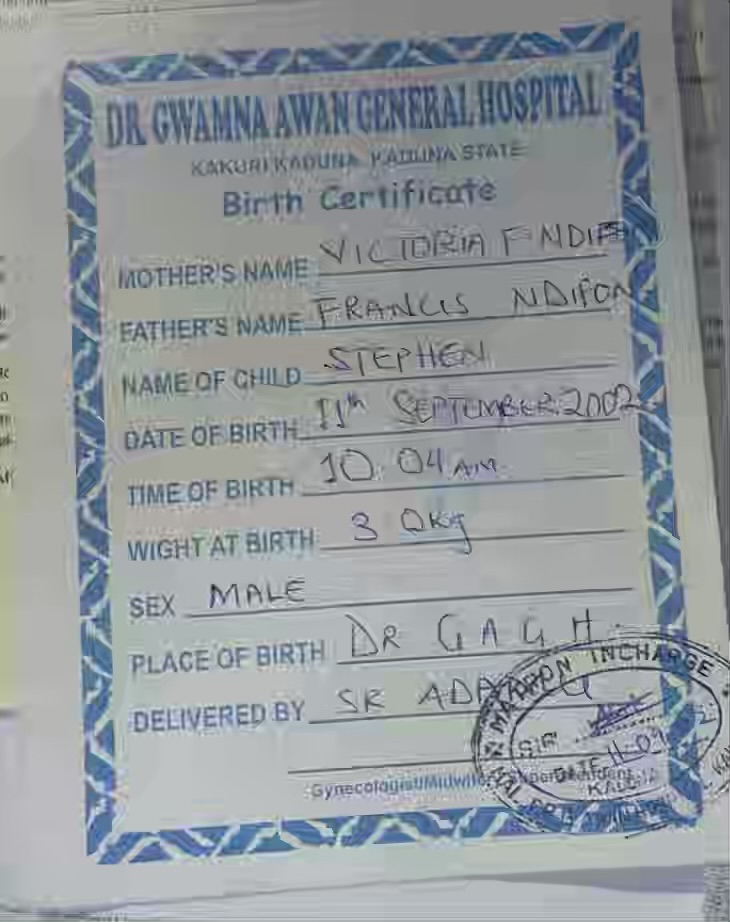 DR. GWAMNA AWAN GENERAL HOSPITAL
KAKURI KADUNA, KADUNA STATE
Birth Certificate
MOTHER'S NAME VICTORIA F NDIF
FATHER'S NAME FRANCIS NDIFON
NAME OF CHILD STEPHEN
DATE OF BIRTH 11th SEPTEMBER 2002
TIME OF BIRTH 10:04 AM
WIGHT AT BIRTH 3.0kg
SEX MALE
PLACE OF BIRTH DR G A G H.
DELIVERED BY SR
MATRON INCHARGE
SIGN
DATE 11-09
Gynecologist/Midwife